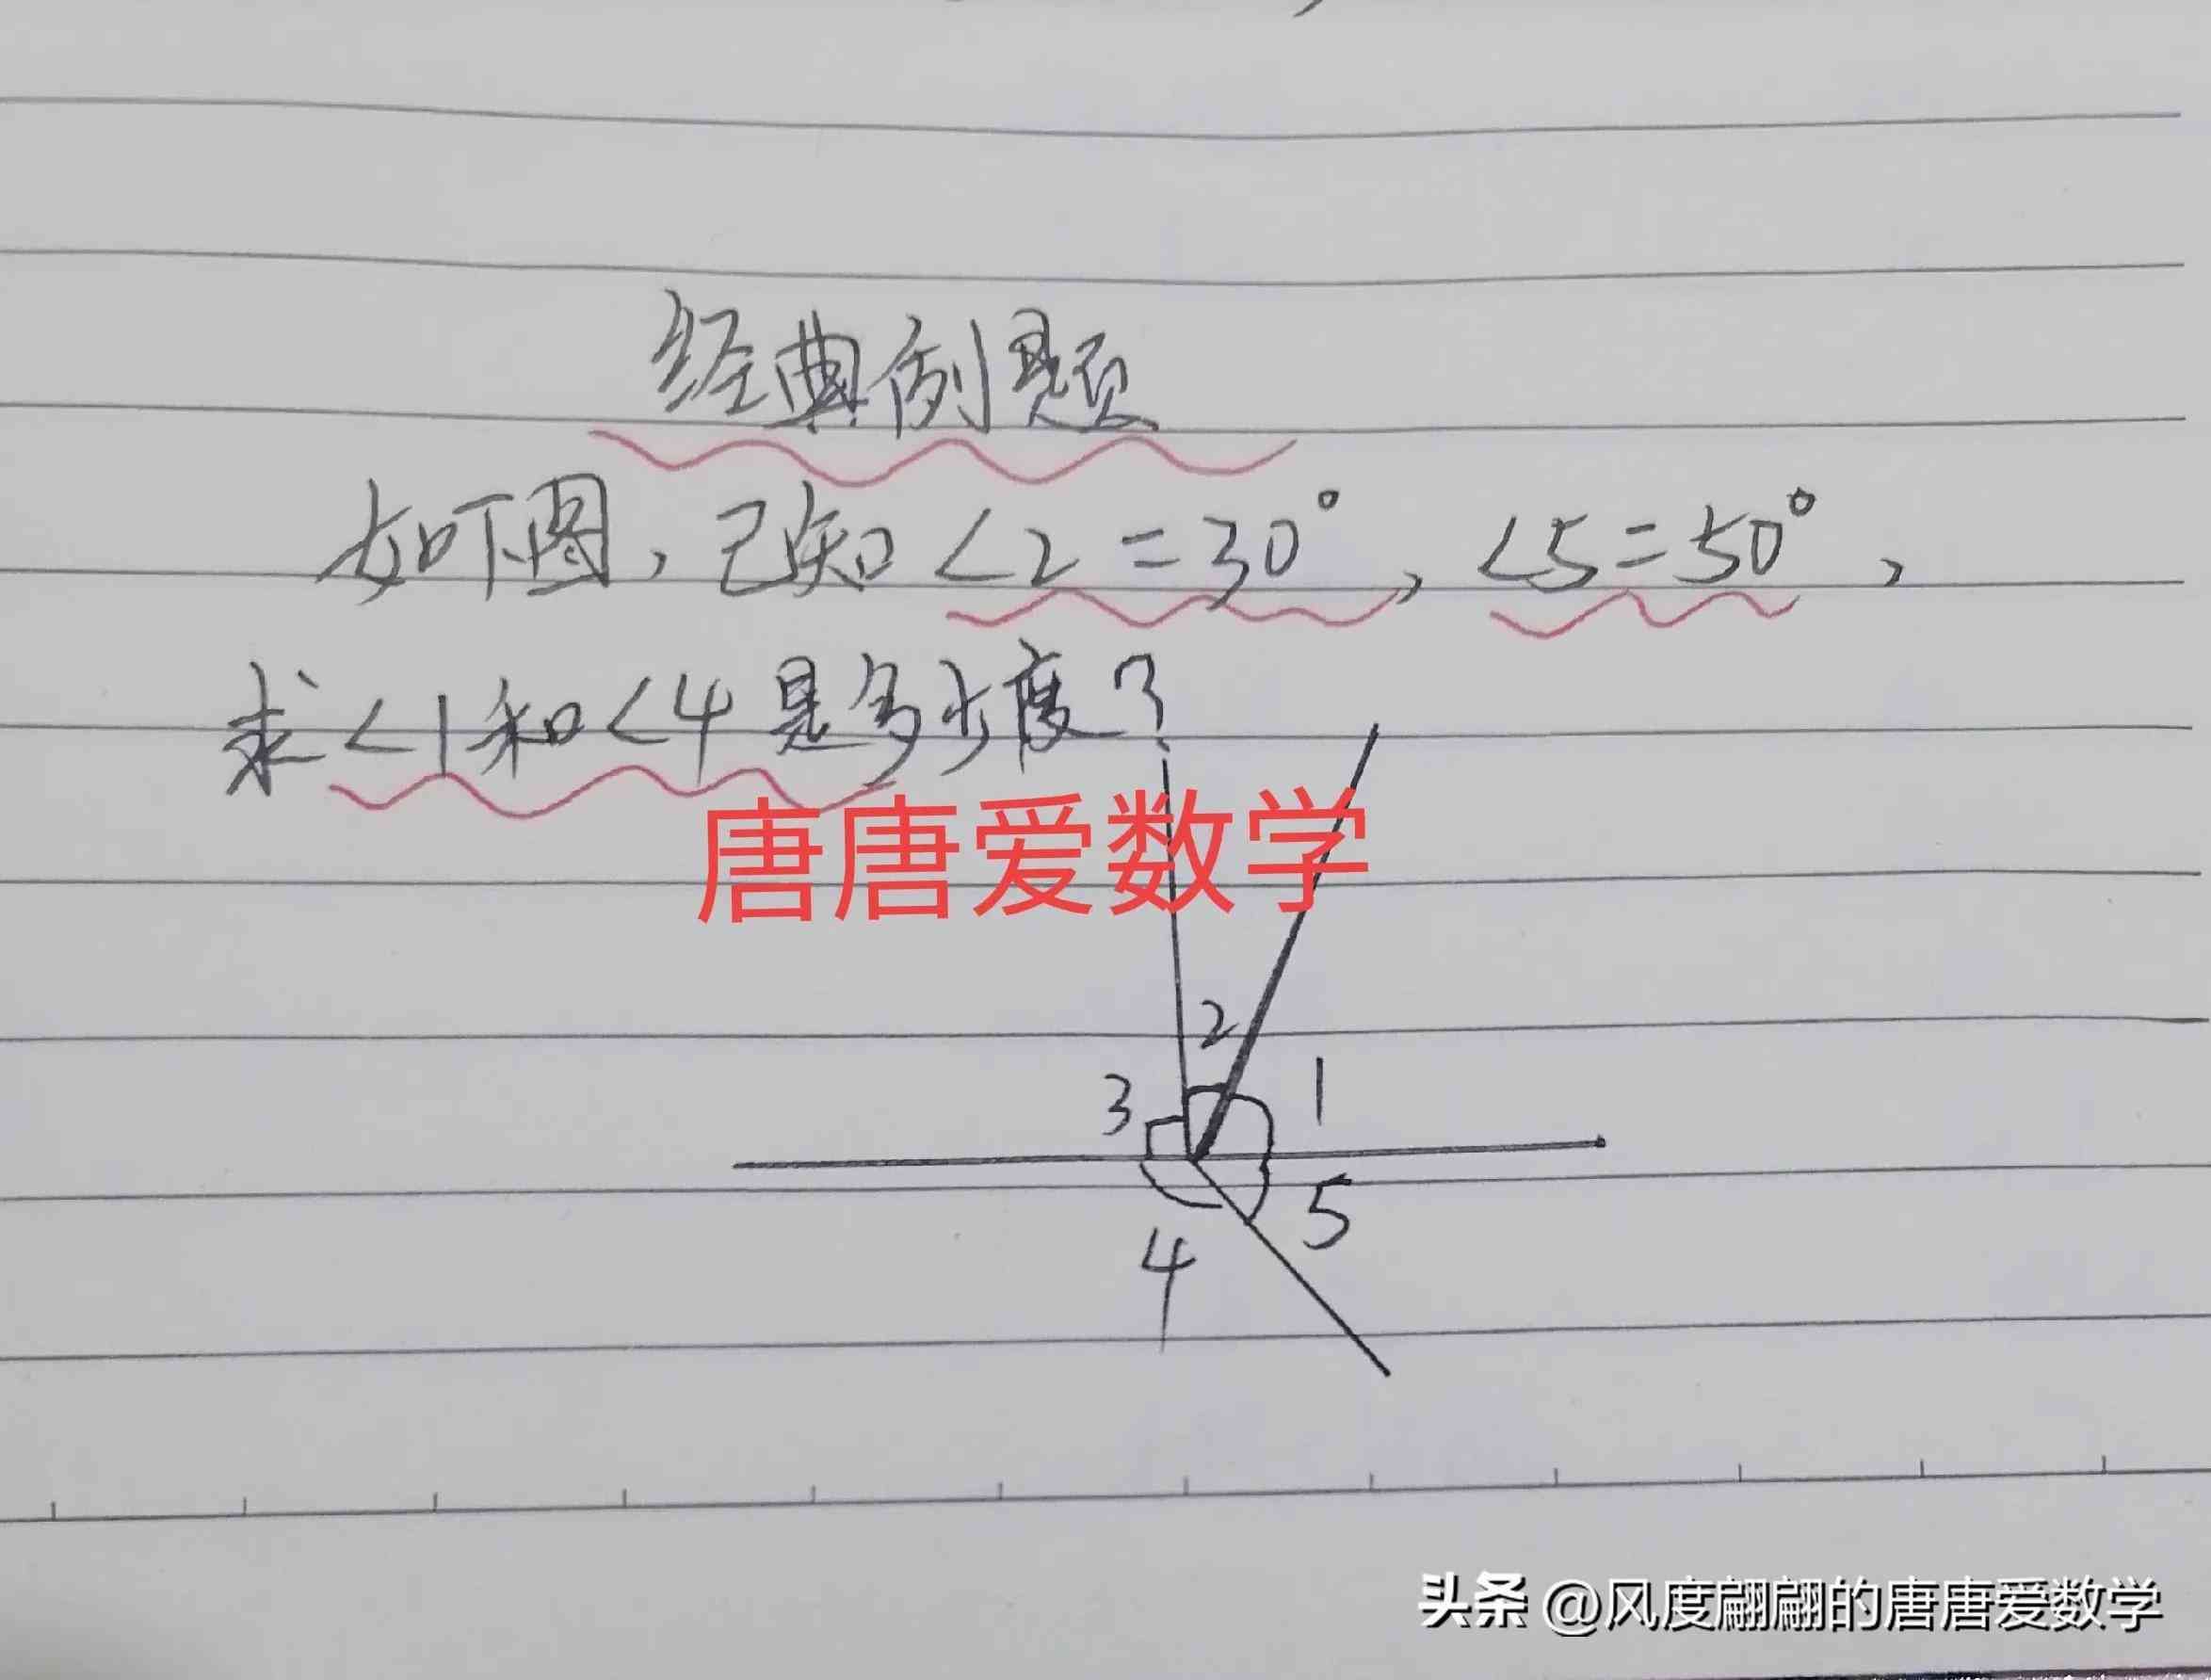 经典例题
如下图，已知∠2=30°，∠5=50°，
求∠1和∠4是多少度？
唐唐爱数学
2
3 1
5
4
头条 @风度翩翩的唐唐爱数学